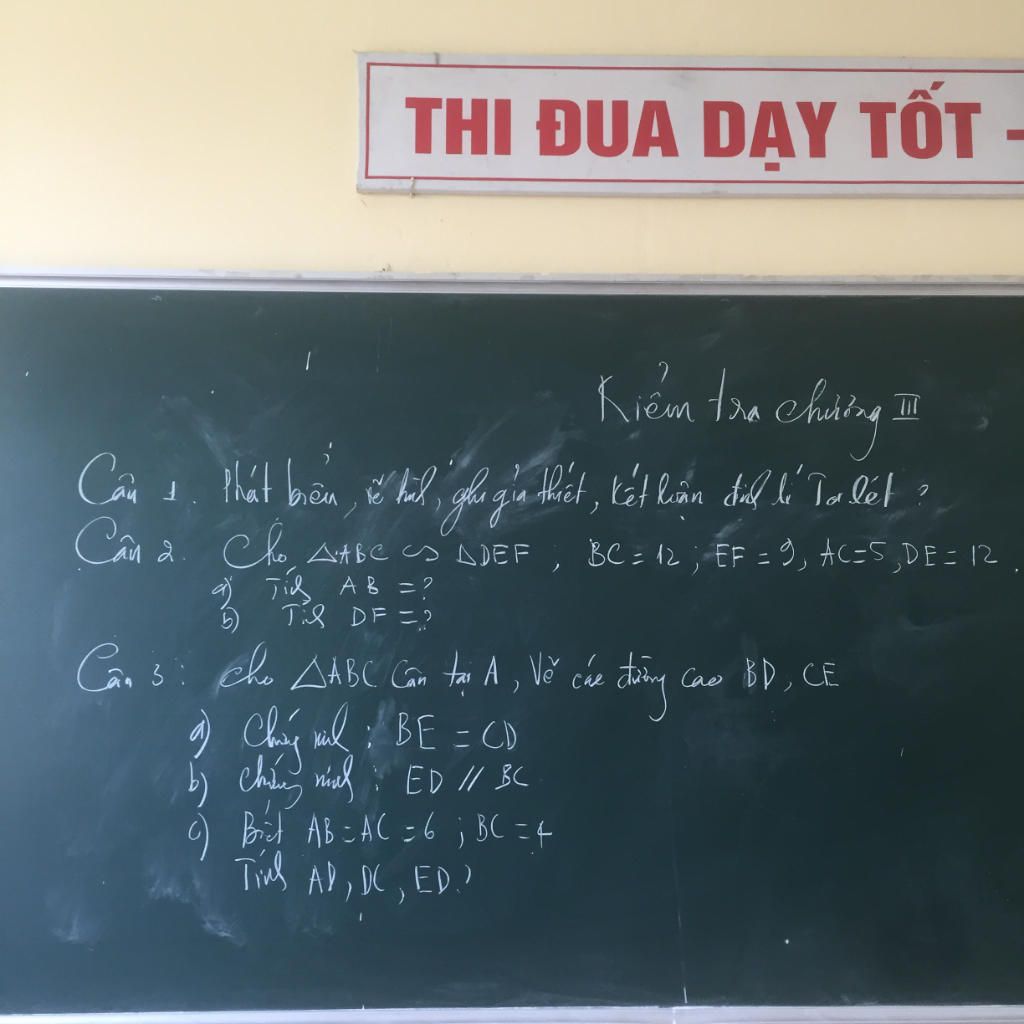 THI ĐUA DẠY TỐT -
Kiểm tra chương III
Câu 1. Phát biểu, vẽ hình, ghi giả thiết, kết luận định lí Ta lét ?
Câu 2. Cho △ABC ∽ △DEF ; BC = 12 ; EF = 9, AC=5, DE = 12.
a) Tính AB = ?
b) Tính DF = ?
Câu 3 : Cho △ABC Cân tại A, Vẽ các đường cao BD, CE
a) Chứng minh : BE = CD
b) Chứng minh : ED // BC
c) Biết AB = AC = 6 ; BC = 4
Tính AD, DC, ED ?